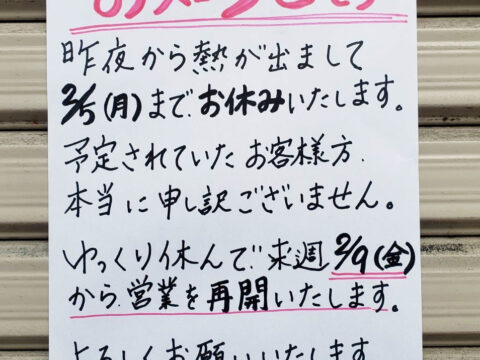 昨夜から熱が出まして
2/5(月)までお休みいたします。
予定されていたお客様方、
本当に申し訳ございません。
ゆっくり休んで、来週2/9(金)
から、営業を再開いたします。
よろしくお願いいたします